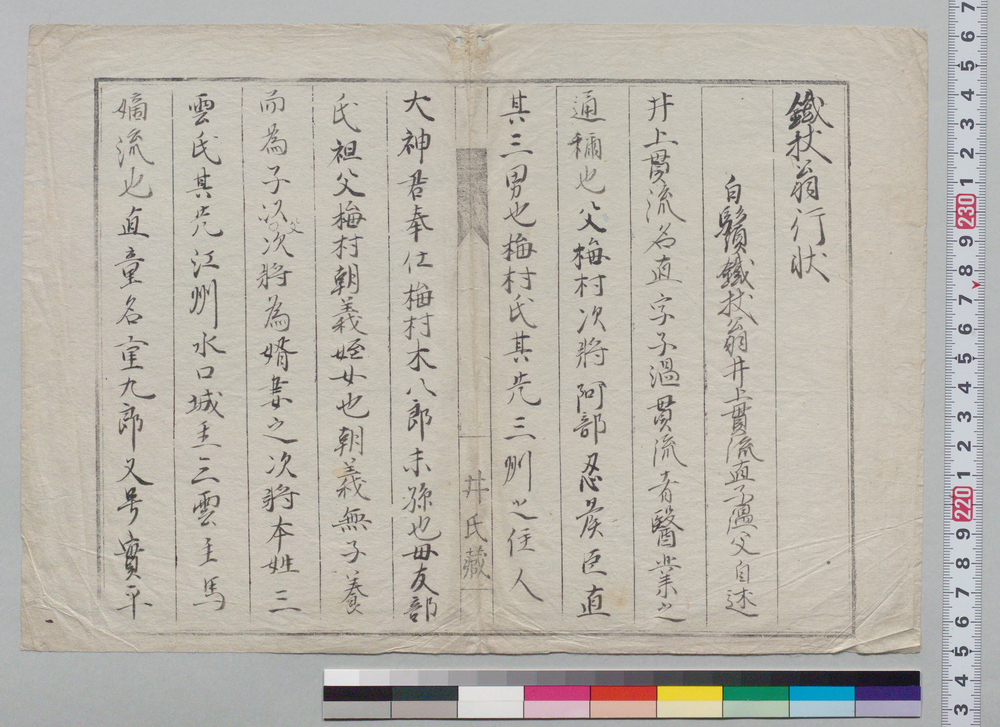 鐵杖翁行状
白鬚鐵杖翁井上貫流直子温父自述
井上貫流名直字子温貫流者醫業之
通稱也父梅村次將阿部忍矦臣直
其三男也梅村氏其先三州之住人
大神君奉仕梅村木八郎末孫也母友部
氏祖父梅村朝義姪女也朝義無子養
而為子次父次將為婿妻之次將本姓三
雲氏其先江州水口城主三雲主馬
嫡流也直童名重九郎又号實平
井氏藏
7
6
5
4
3
2
1
230
9
8
7
6
5
4
3
2
1
220
9
8
7
6
5
4
3